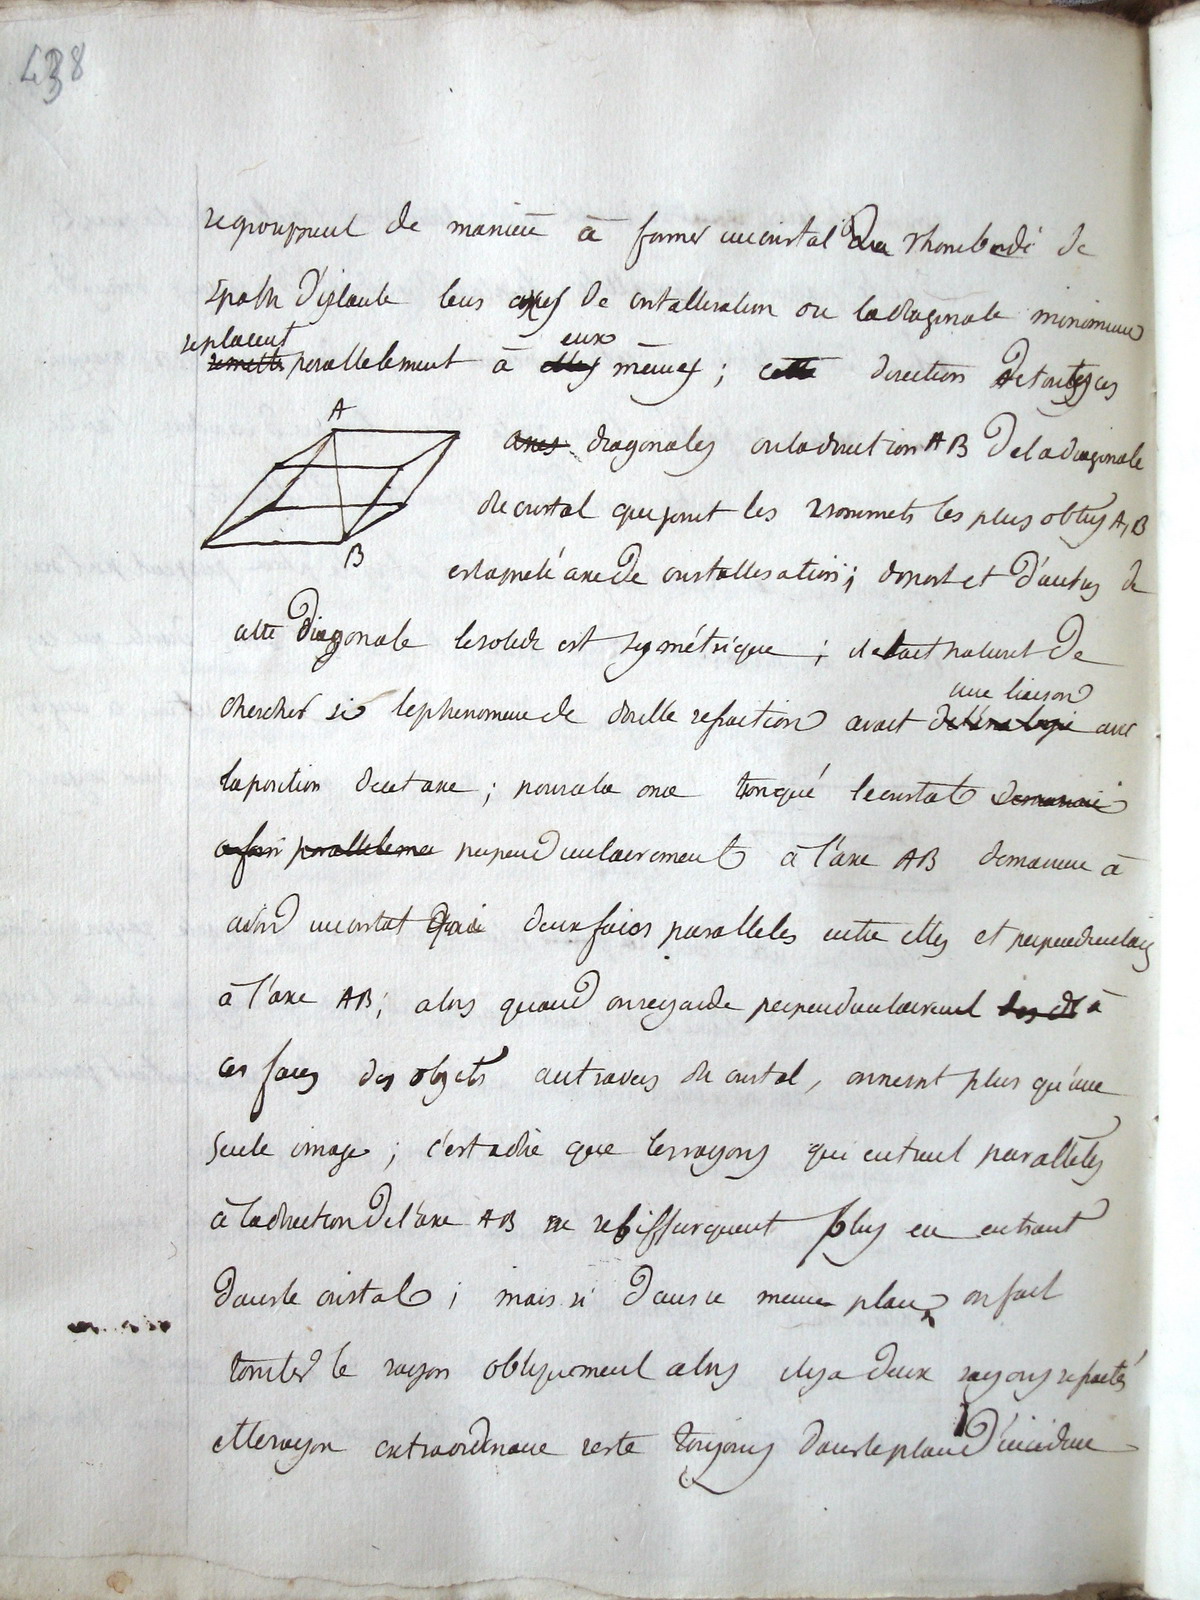 438
se groupent de manière à former un cristal rhomboïde de
spath d'islande leurs axes de cristallisation ou la diagonale minimum
se placent
remette parallelement à elles mêmes ; cette direction de toutes ces
eux
A
axes diagonales ou la direction AB de la diagonale
du cristal qui joint les 2 sommets les plus obtus A, B
B
est appelé axe de cristallisation ; de part et d'autre de
cette diagonale le solide est symétrique ; il etait naturel de
une liaison
chercher si le phenomene de double refraction avait de l'analogie avec
la position de cet axe ; pour cela on a tronqué le cristal de maniere
a faire parallelemen perpendiculairement à l'axe AB de maniere à
avoir un cristal deux faces paralleles entre elles et perpendiculaires
à l'axe AB ; alors quand on regarde perpendiculairement à
ces faces des objets au travers du cristal, on ne voit plus qu'une
seule image ; c'est a dire que les rayons qui entrent paralleles
à la direction de l'axe AB ne se biffurquent plus en entrant
dans le cristal ; mais si dans ce meme plan on fait
tomber le rayon obliquement alors il y a deux rayons refractés
et le rayon extraordinaire reste toujours dans le plan d'incidence